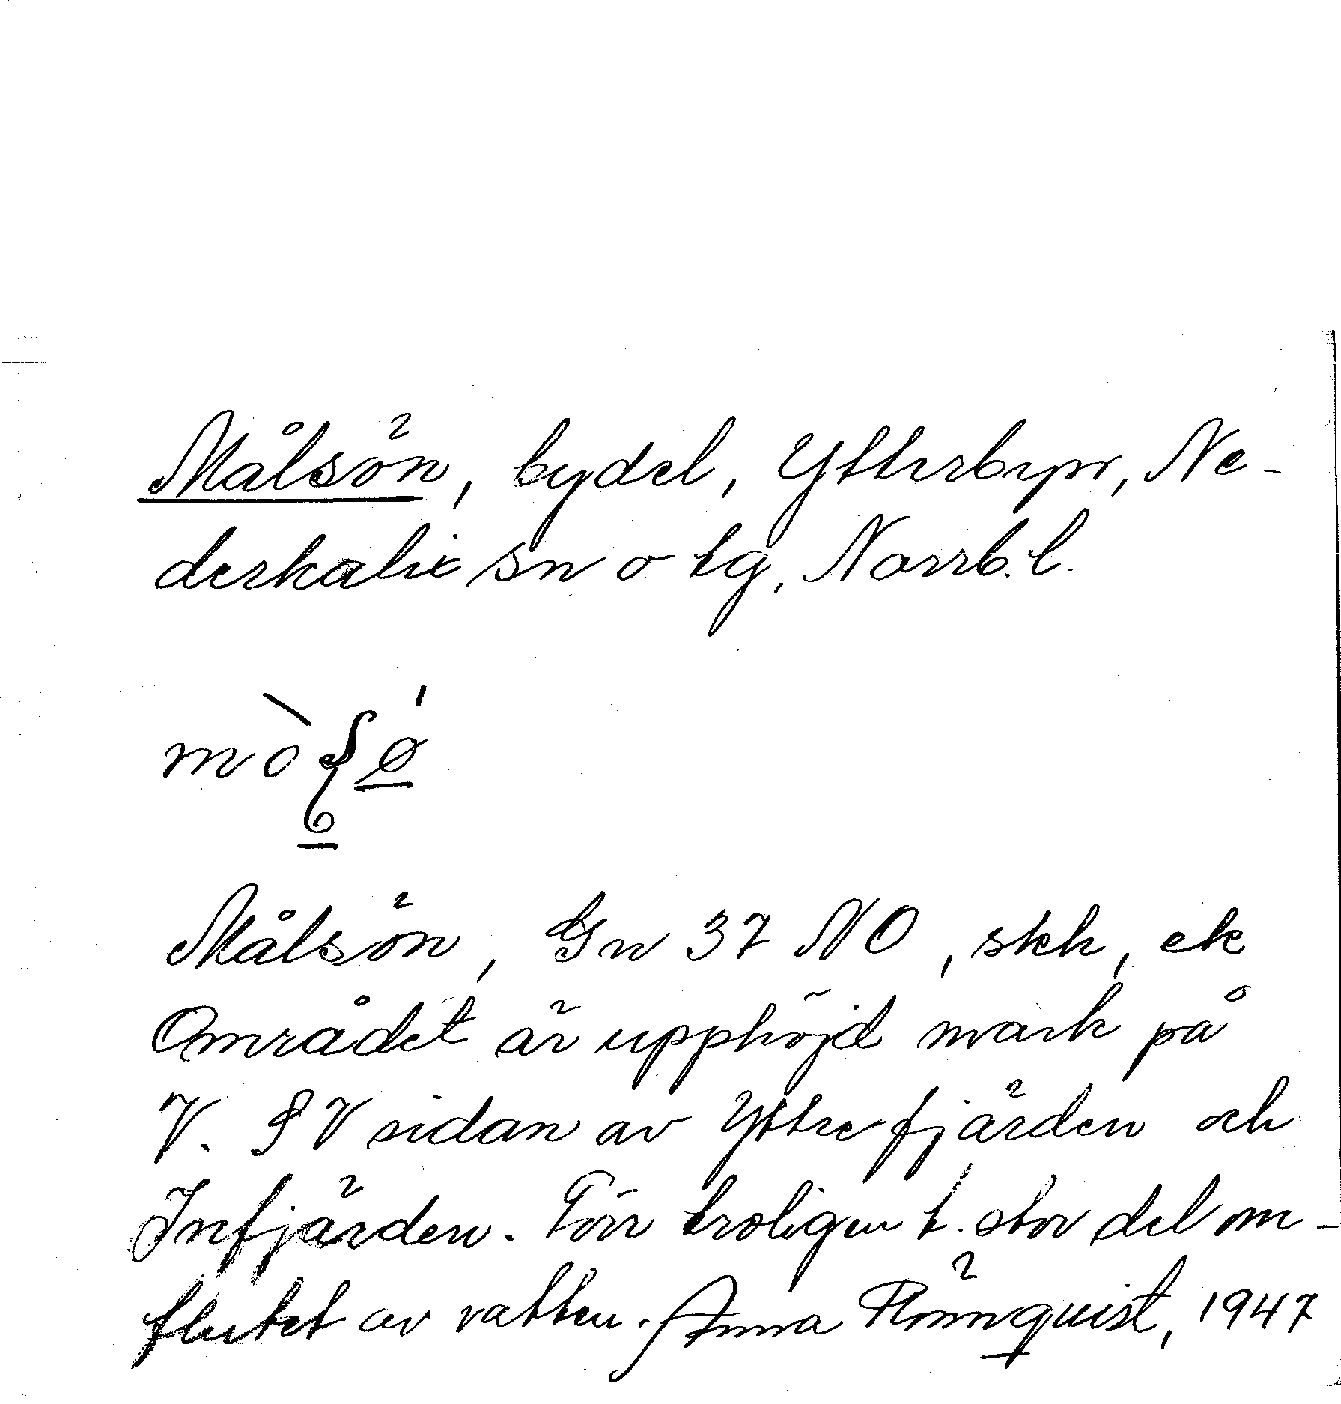 Målsön, bydel, Ytterbyn, Ne-
derkalix sn o tg, Norrb. l.
Målsön, Gn 37 NO, skh, ek
Området är upphöjd mark på
V. SV sidan av Yttrefjärden och
Infjärden. Förr troligen t. stor del om-
flutet av vatten. Anna Rönnquist, 1947